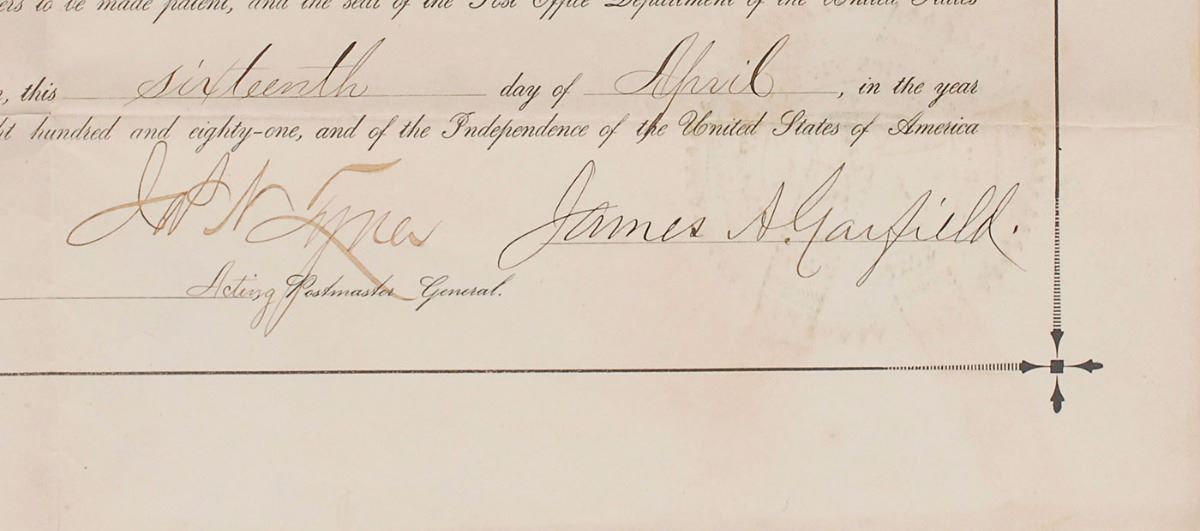 ers to be made patent, and the seal of the Post Office Department of the United States
this sixteenth day of April, in the year
hundred and eighty-one, and of the Independence of the United States of America
Jas N Tyner James A. Garfield.
Acting Postmaster General.